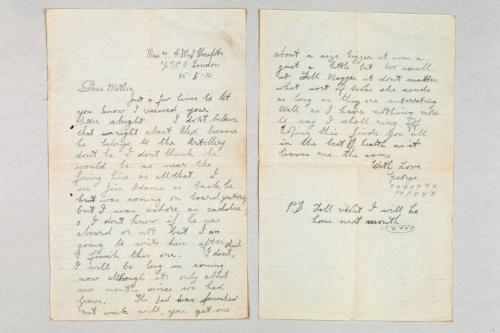 G.P.O London
Dear Mother
Just a few lines to let
you know I received your
letter alright. I don't believe
that is right about Alf because
he belongs to the Artillery
don't he I don't think he
would be as near the
firing line as all that. I
see Jim Adams is back he
but was coming on board
but I was ashore
& I don't know if he was
aboard or not but I am
going to write him after
I finish this one. I don't
I will be long in coming
now although its only about
six months since we had
leave. The pad was finished
last week will you get one
about a size bigger it was a
just a little bit too small
Tell Maggie it don't matter
what sort of books she sends
as long as they are interesting
Well as I have nothing more
to say I shall ring off
hoping this finds you all
in the best of health as it
leaves me the same
With Love
George
xxxxxxx
xxxxxx
PS Tell I will be
home next month